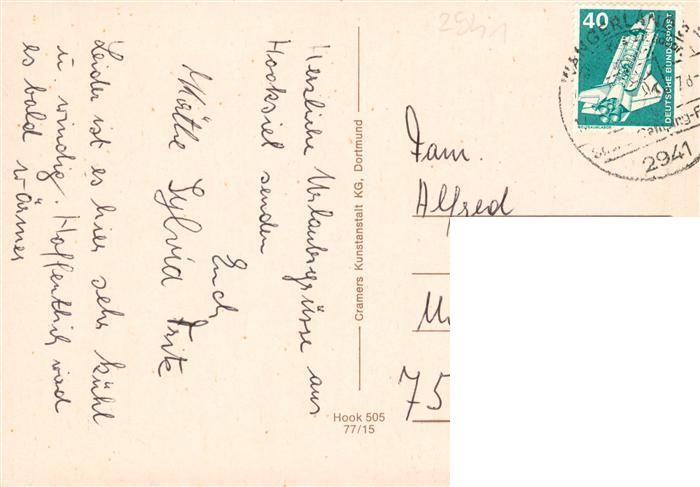 Herzliche Urlaubsgrüsse aus
Hooksiel senden
Euch
Käthe Sylvia Fritz
Leider ist es hier sehr kühl
u windig. Hoffentlich wird
es bald wärmer
Cramers Kunstanstalt KG, Dortmund
Hook 505
77/15
2941
40
DEUTSCHE BUNDESPOST
WANGERLAND
2941
Fam.
Alfred
75